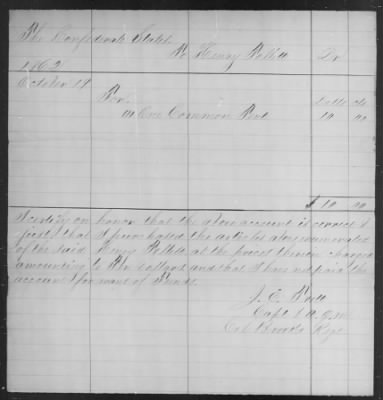 The Confederate States
To Henry Pollitt Dr
1862
October 17
For Dolls cts
One Common Tent 10 00
$ 10 00
I certify on honor that the above account is correct &
just, that I purchased the articles above enumerated
of the said Henry Pollitt at the prices therein charged
amounting to Ten dollars and that I have not paid the
account for want of Funds.
J. E.
Capt & A. Q. M.
Col Regt